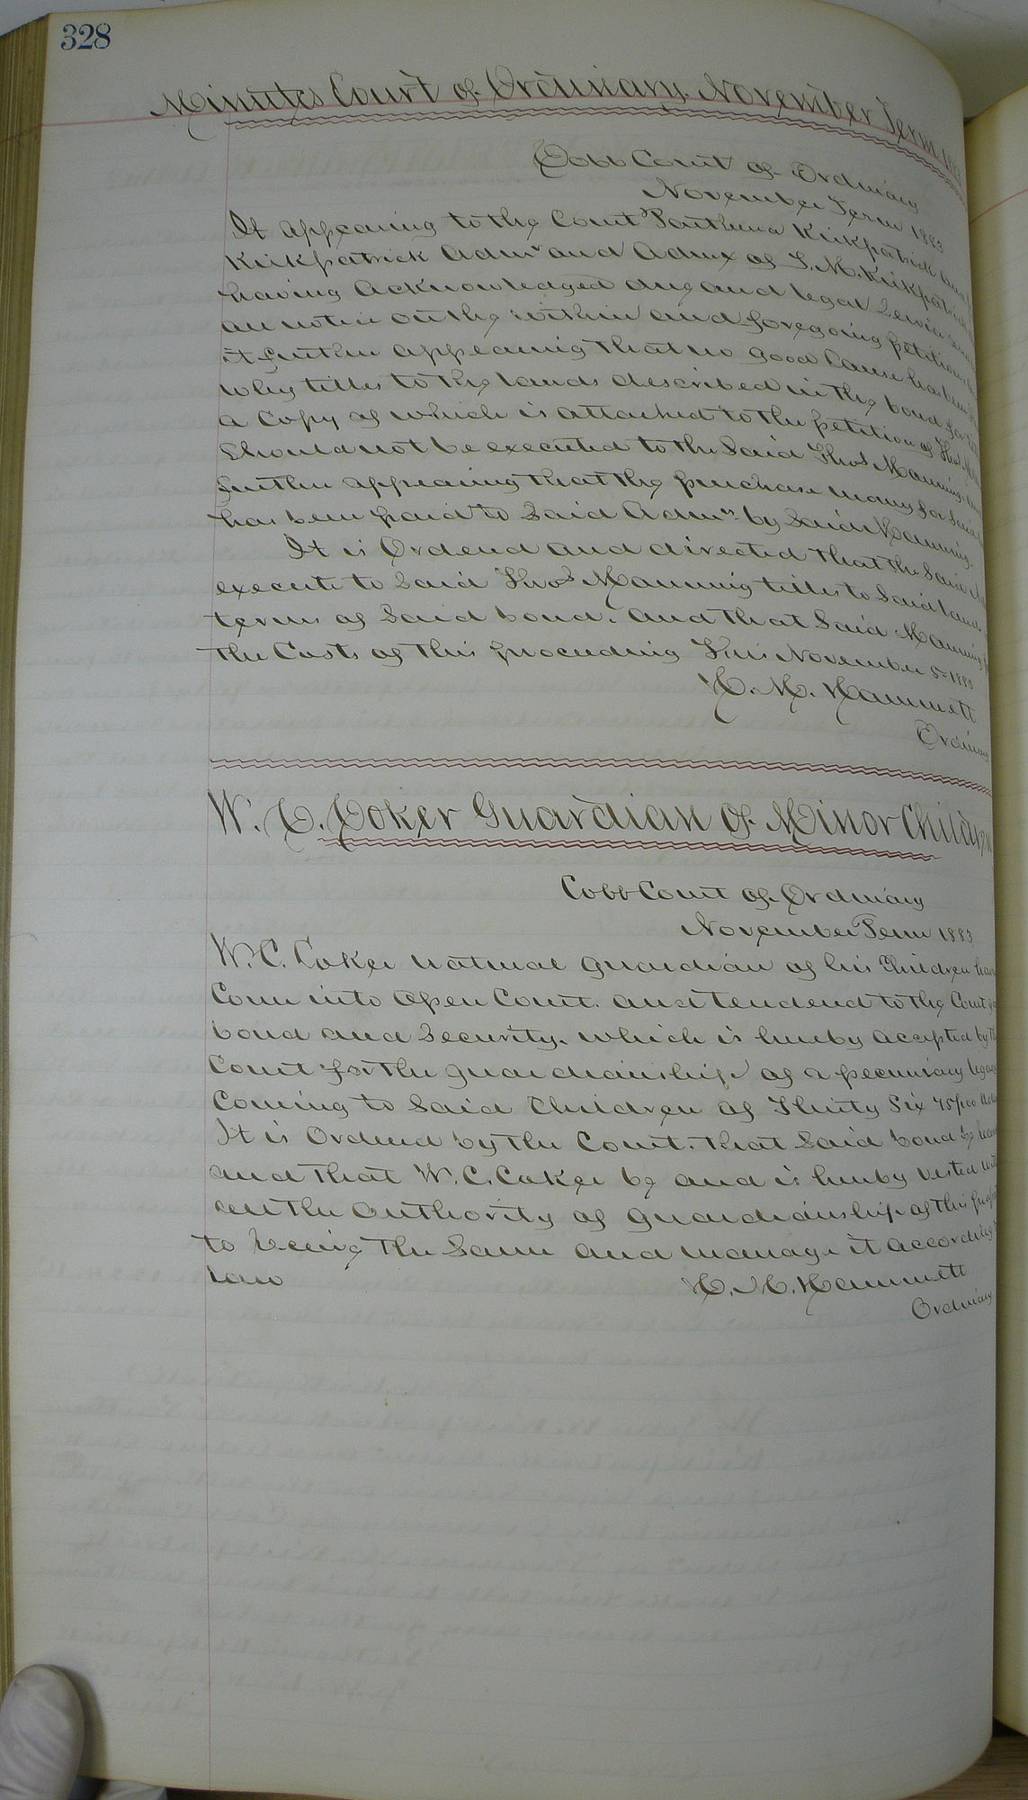 328
Minutes Court of Ordinary. November Term
Cobb Court of Ordinary
November Term 1883
It appearing to the Court Kirkpatrick
Kirkpatrick Admr and Admx of Kirkpatrick
having acknowledged due and legal
notice on the within and foregoing petition
it further appearing that no good Cause has been
why titles to the lands described in the bond for
a Copy of which is attached to the petition of Thos
Should not be executed to the Said Thos Manning.
further appearing that the purchase money for Said
has been paid to Said Admrs by Said Manning.
It is Ordered and directed that the Said
execute to Said Thos Manning titles to Said land
terms of Said bond. and that Said Manning
the Costs of this proceeding This November 5th 1883
H. M. Hammett
Ordinary
W. C. Coker Guardian of Minor Children
Cobb Court of Ordinary
November Term 1883
W. C. Coker natural guardian of his Children
Come into Open Court. and tendered to the Court
bond and Security. which is hereby accepted by the
Court for the guardianship of a pecuniary legacy
Coming to Said Children of Thirty Six 75/100
It is Ordered by the Court. that Said bond be
and that W. C. Coker be and is hereby vested
all the authority of guardianship of this
to receive the Same and manage it according
law
H. M. Hammett
Ordinary